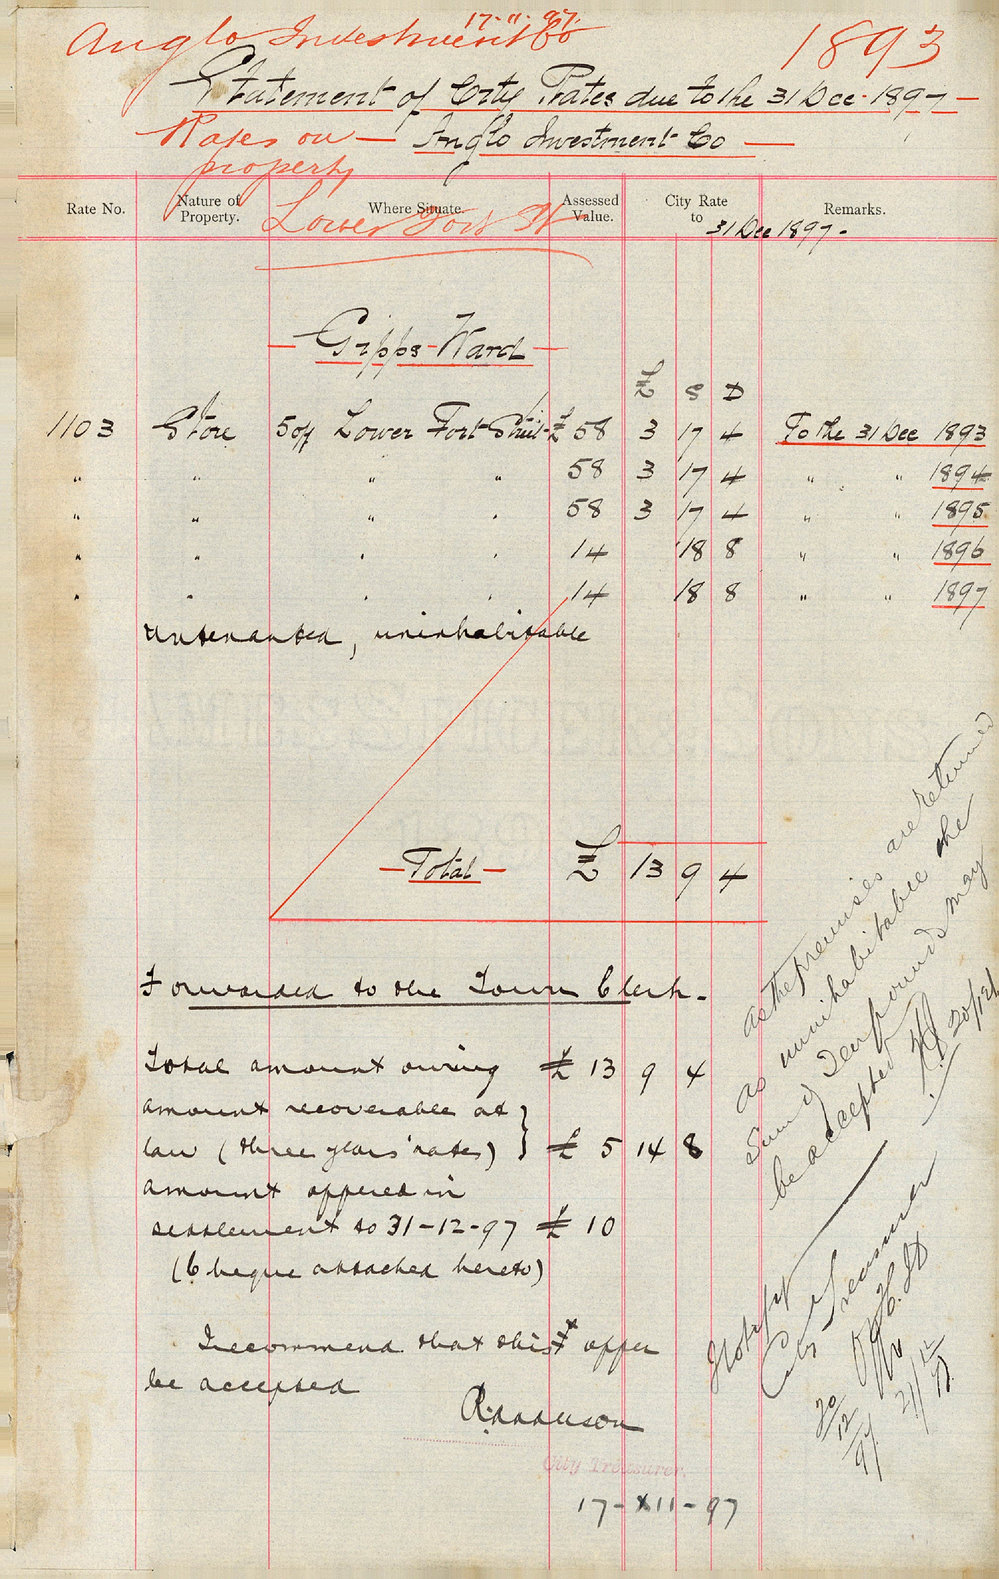 17-11-97.
Anglo Investment Co
1893
Statement of City Rates due to the 31 Dec. 1897
Rates on — Anglo Investment Co —
property
Lower Fort St
Rate No. Nature of Property. Where Situate. Assessed Value. City Rate to 31 Dec 1897. Remarks.
Gipps Ward
£ S D
1103 Store 5 off Lower Fort Street £ 58 3 17 4 To the 31 Dec 1893
" " " " 58 3 17 4 " " 1894
" " " " 58 3 17 4 " " 1895
" " " " 14 18 8 " " 1896
" " " " 14 18 8 " " 1897
Untenanted, uninhabitable
— Total — £ 13 9 4
Forwarded to the Town Clerk.
Total amount owing £ 13 9 4
amount recoverable at
law (three years' rates) } £ 5 14 8
amount offered in
settlement to 31-12-97 £ 10
(Cheque attached hereto)
I recommend that this offer
be accepted
City Treasurer.
17-XII-97
As the premises are returned
as uninhabitable the
sum of Ten pounds may
be accepted
20/12/
Notify
City Treasurer
20/12/97
21/12/97